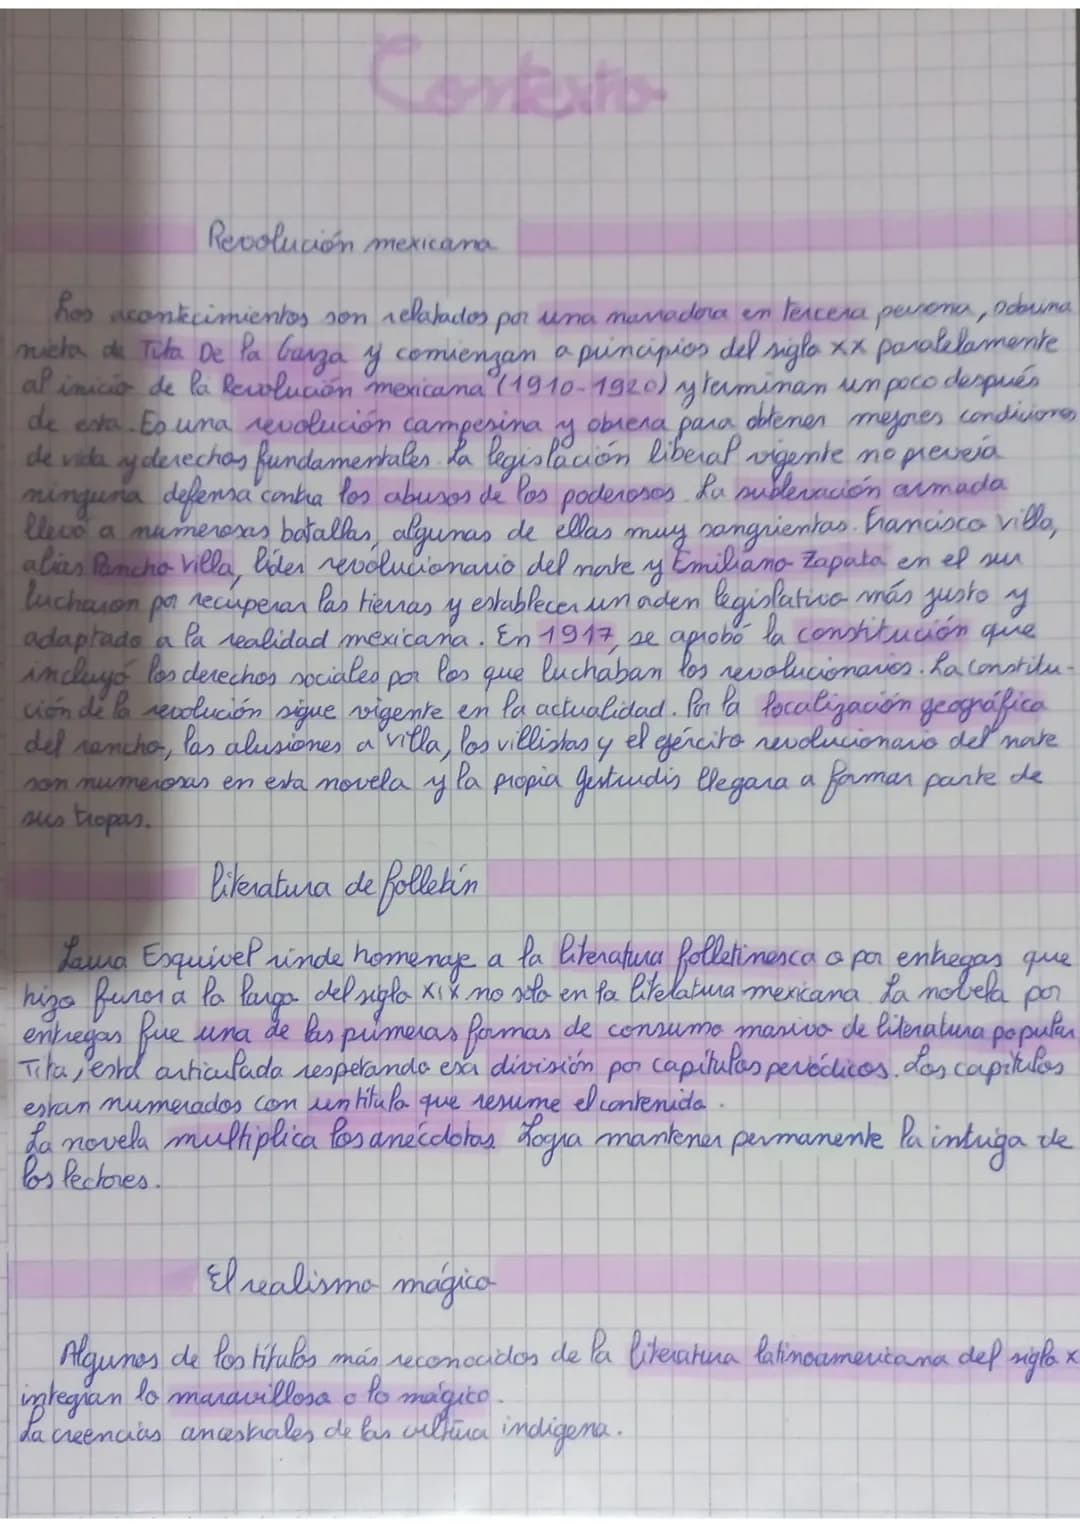 Contexto
Revolución mexicana
Los acontecimientos son relatados por una narradora en tercera persona, sobrina
nieta de Tita De la Garza y comienzan a principios del siglo XX paralelamente
al inicio de la Revolución mexicana (1910-1920) y terminan un poco después
de esta. Es una revolución campesina y obrera para obtener mejores condiciones
de vida y derechos fundamentales. La legislación liberal vigente no preveía
ninguna defensa contra los abusos de los poderosos. La sublevación armada
llevó a numerosas batallas, algunas de ellas muy sangrientas. Francisco villa,
alias Pancho Villa, líder revolucionario del norte y Emiliano Zapata en el sur
lucharon por recuperar las tierras y establecer un orden legislativo más justo y
adaptado a la realidad mexicana. En 1917, se aprobó la constitución que
incluyó los derechos sociales por los que luchaban los revolucionarios. La constitu-
ción de la revolución sigue vigente en la actualidad. Por la localización geográfica
del rancho, las alusiones a Villa, los villistas y el ejército revolucionario del norte
son numerosas en esta novela y la propia Gertrudis llegara a formar parte de
sus tropas.
literatura de folletín
Laura Esquivel rinde homenaje a la literatura folletinesca o por entregas que
hizo furor a lo largo del siglo XIX no solo en la literatura mexicana. La novela por
entregas fue una de las primeras formas de consumo masivo de literatura popular
Tita, está articulada respetando esa división por capítulos periódicos. Los capítulos
estan numerados con un título que resume el contenido.
La novela multiplica las anécdotas. Logra mantener permanente la intriga de
los lectores.
El realismo mágico
Algunos de los títulos más reconocidos de la literatura latinoamericana del siglo X
integran lo maravilloso o lo mágico.
La creencias ancestrales de las cultura indígena.